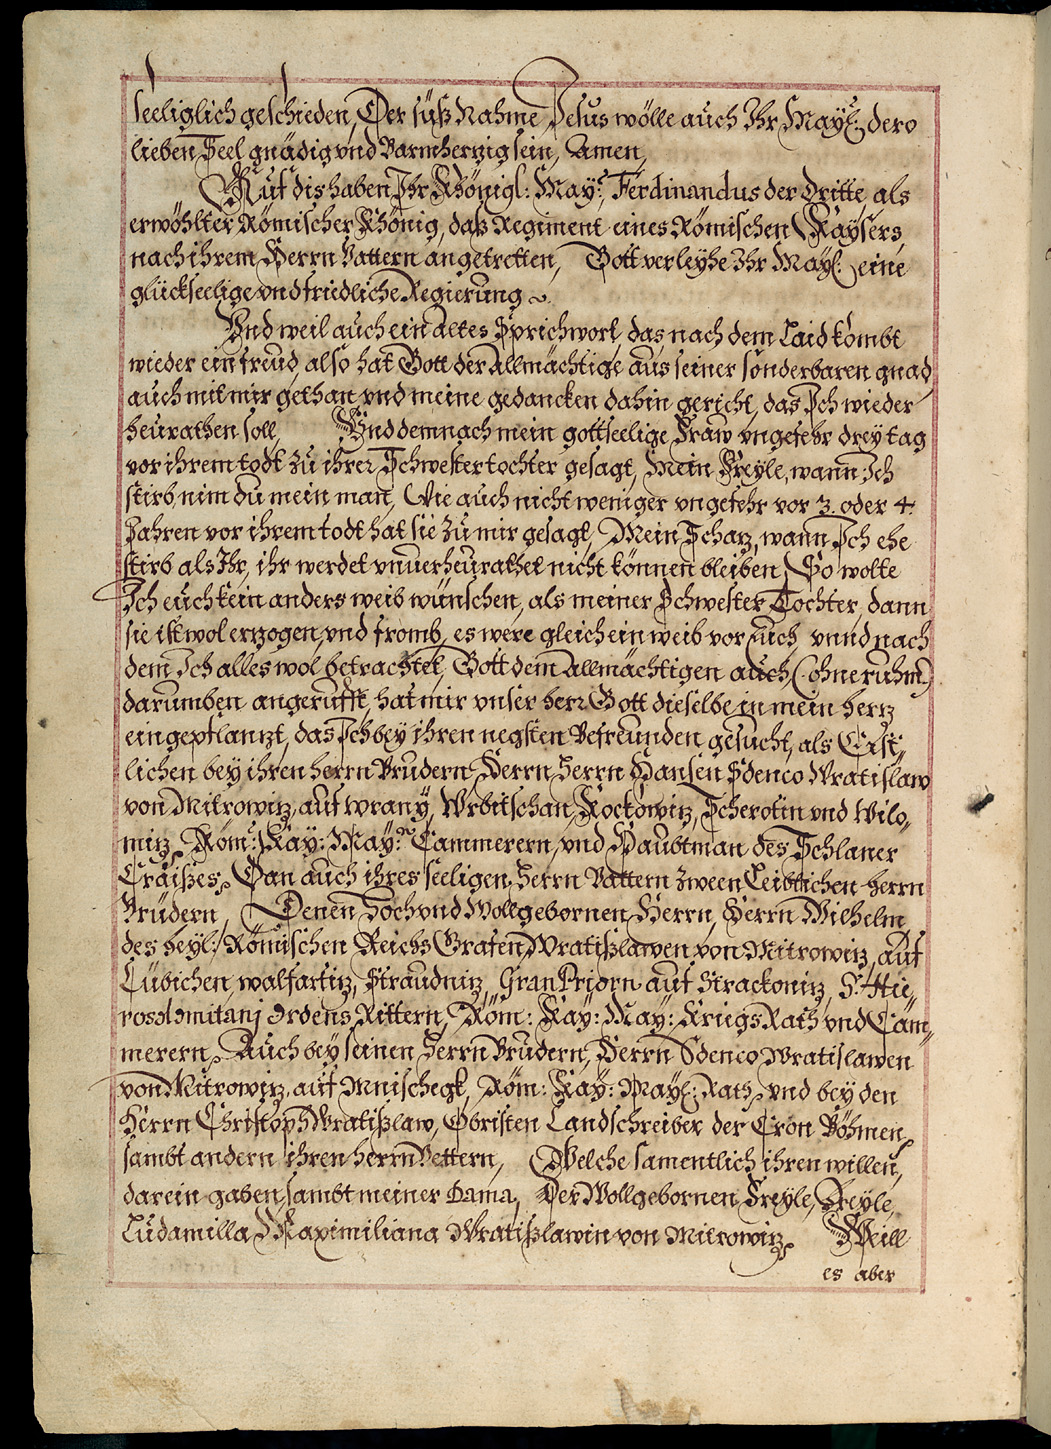 seeliglich geschieden, Der süß Nahme Jesus wölle auch Ihr Mayt: dero
lieben Seel gnädig vnd Barmherzig sein, Amen,
Auf dis haben Ihr Khönigl: Mayt: Ferdinandus der Dritte, als
erwöhlter Römischer Khönig, daß Regiment eines Römischen Kaysers,
nach ihrem Herrn Vattern angetretten, Gott verleyhe Ihr Mayt: eine
glückseelige vnd friedliche Regierung.
Vnd weil auch ein altes Sprichwort, das nach dem Laid kombt
wieder ein freud, also hat Gott der Allmächtige aus seiner sonderbaren gnad,
auch mit mir gethan vnd meine gedancken dahin gericht, das Ich wieder
heurathen soll, Vnd demnach mein gottseelige Fraw vngefehr drey tag
vor ihrem todt zu ihrer Schwester tochter gesagt, Mein Freyle, wann Ich
stirb, nim du mein man, Wie auch nicht weniger vngefehr vor 3. oder 4.
Jahren vor ihrem todt hat sie zu mir gesagt, Mein Schatz, wann Ich ehe
stirb als Ihr, ihr werdet vnuerheurathet nicht können bleiben, So wolte
Ich euch kein anders weib wünschen, als meiner Schwester Tochter, dann
sie ist wol erzogen, vnd fromb, es were gleich ein weib vor euch, vnnd nach
dem Ich alles wol betrachtet, Gott dem Allmächtigen auch (ohne ruhm)
darumben angerufft, hat mir vnser herr Gott dieselbe in mein hertz
eingepflantzt, das Ich bey ihren negsten Befreunden gesucht, als Erst-
lichen bey ihren herrn Brudern, Herrn Herrn Hansen Sdenco Wratislaw
von Mitrowitz, auf Wrany, Wrbitschan, Kockowitz, Scherotin vnd Wilo-
mitz, Röm: Kay: Mayt: Cammerern, vnd Haubtman des Schlaner
Craißes, Dan auch ihres seeligen Herrn Vattern zween Leiblichen herrn
Brüdern, Denen Hoch vnd Wollgebornen Herrn, Herrn Wilhelm,
des heyl: Römischen Reichs Grafen Wratißlawen von Mitrowitz, auf
Lübichen, walfartitz, Straudnitz, Gran Priorn auf Strackonitz, S: Hie-
rosolomitanj Ordens Rittern, Röm: Kay: May: Kriegs Rath vnd Cam-
merern, Auch bey seinen Herrn Brudern, Herrn Sdenco Wratislawen
von Mitrowitz, auf Mnischegk, Röm: Kay: Mayt: Rath, vnd bey den
Herrn Christoph Wratißlaw, Obristen Landschreiber der Cron Böhmen,
sambt andern ihren herrn Vettern, Welche samentlich ihren willen,
darein gaben, sambt meiner Dama, Der Wollgebornen Freyle, Freyle,
Ludamilla Maximiliana Wratißlawin von Mitrowitz, Weill
es aber